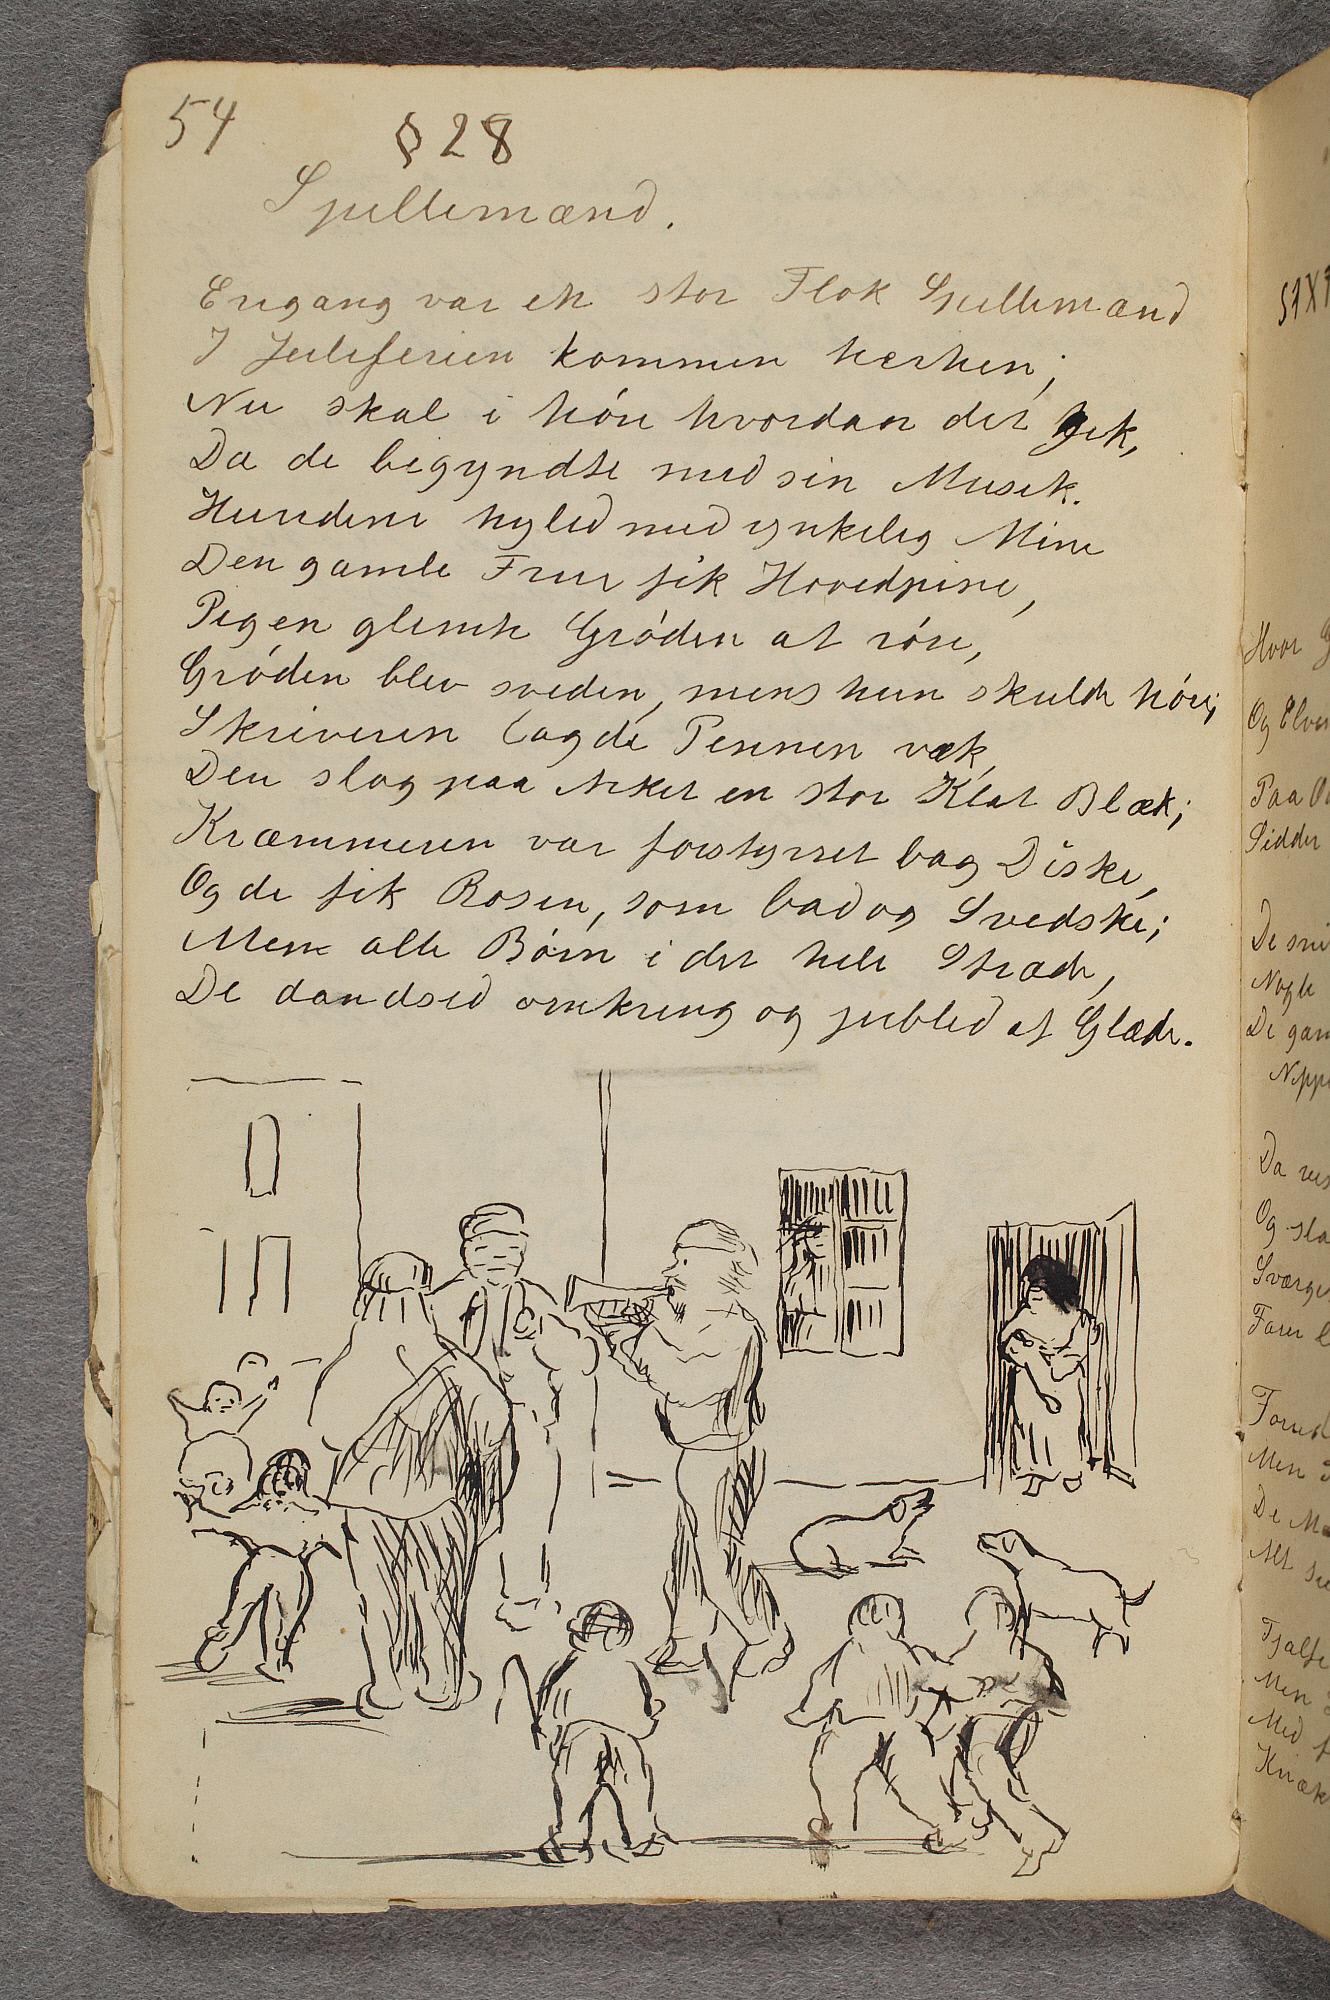 54
§ 28
Spillemænd.
Engang var en stor Flok Spillemænd
I Juleferien kommen herhen;
Nu skal i höre hvordan det gik,
Da de begyndte med sin Musik.
Hundene hyled med ynkelig Mine
Den gamle Frue fik Hovedpine,
Pigen glemte Gröden at röre,
Gröden blev sveden, mens hun skulde höre;
Skriveren lagde Pennen væk,
Den slog paa Arket en stor Klat Blæk;
Kræmmeren var forstyrret bag Diske,
Og de fik Rosin, som bad og Svedske;
Men alle Börn i det hele Stræde,
De dandsed omkring og jubled af Glæde.
Hvor
Og Elven
Paa
Sidder
De
Nogle
De
Da
Og
Men
De
Alt
Men
Med